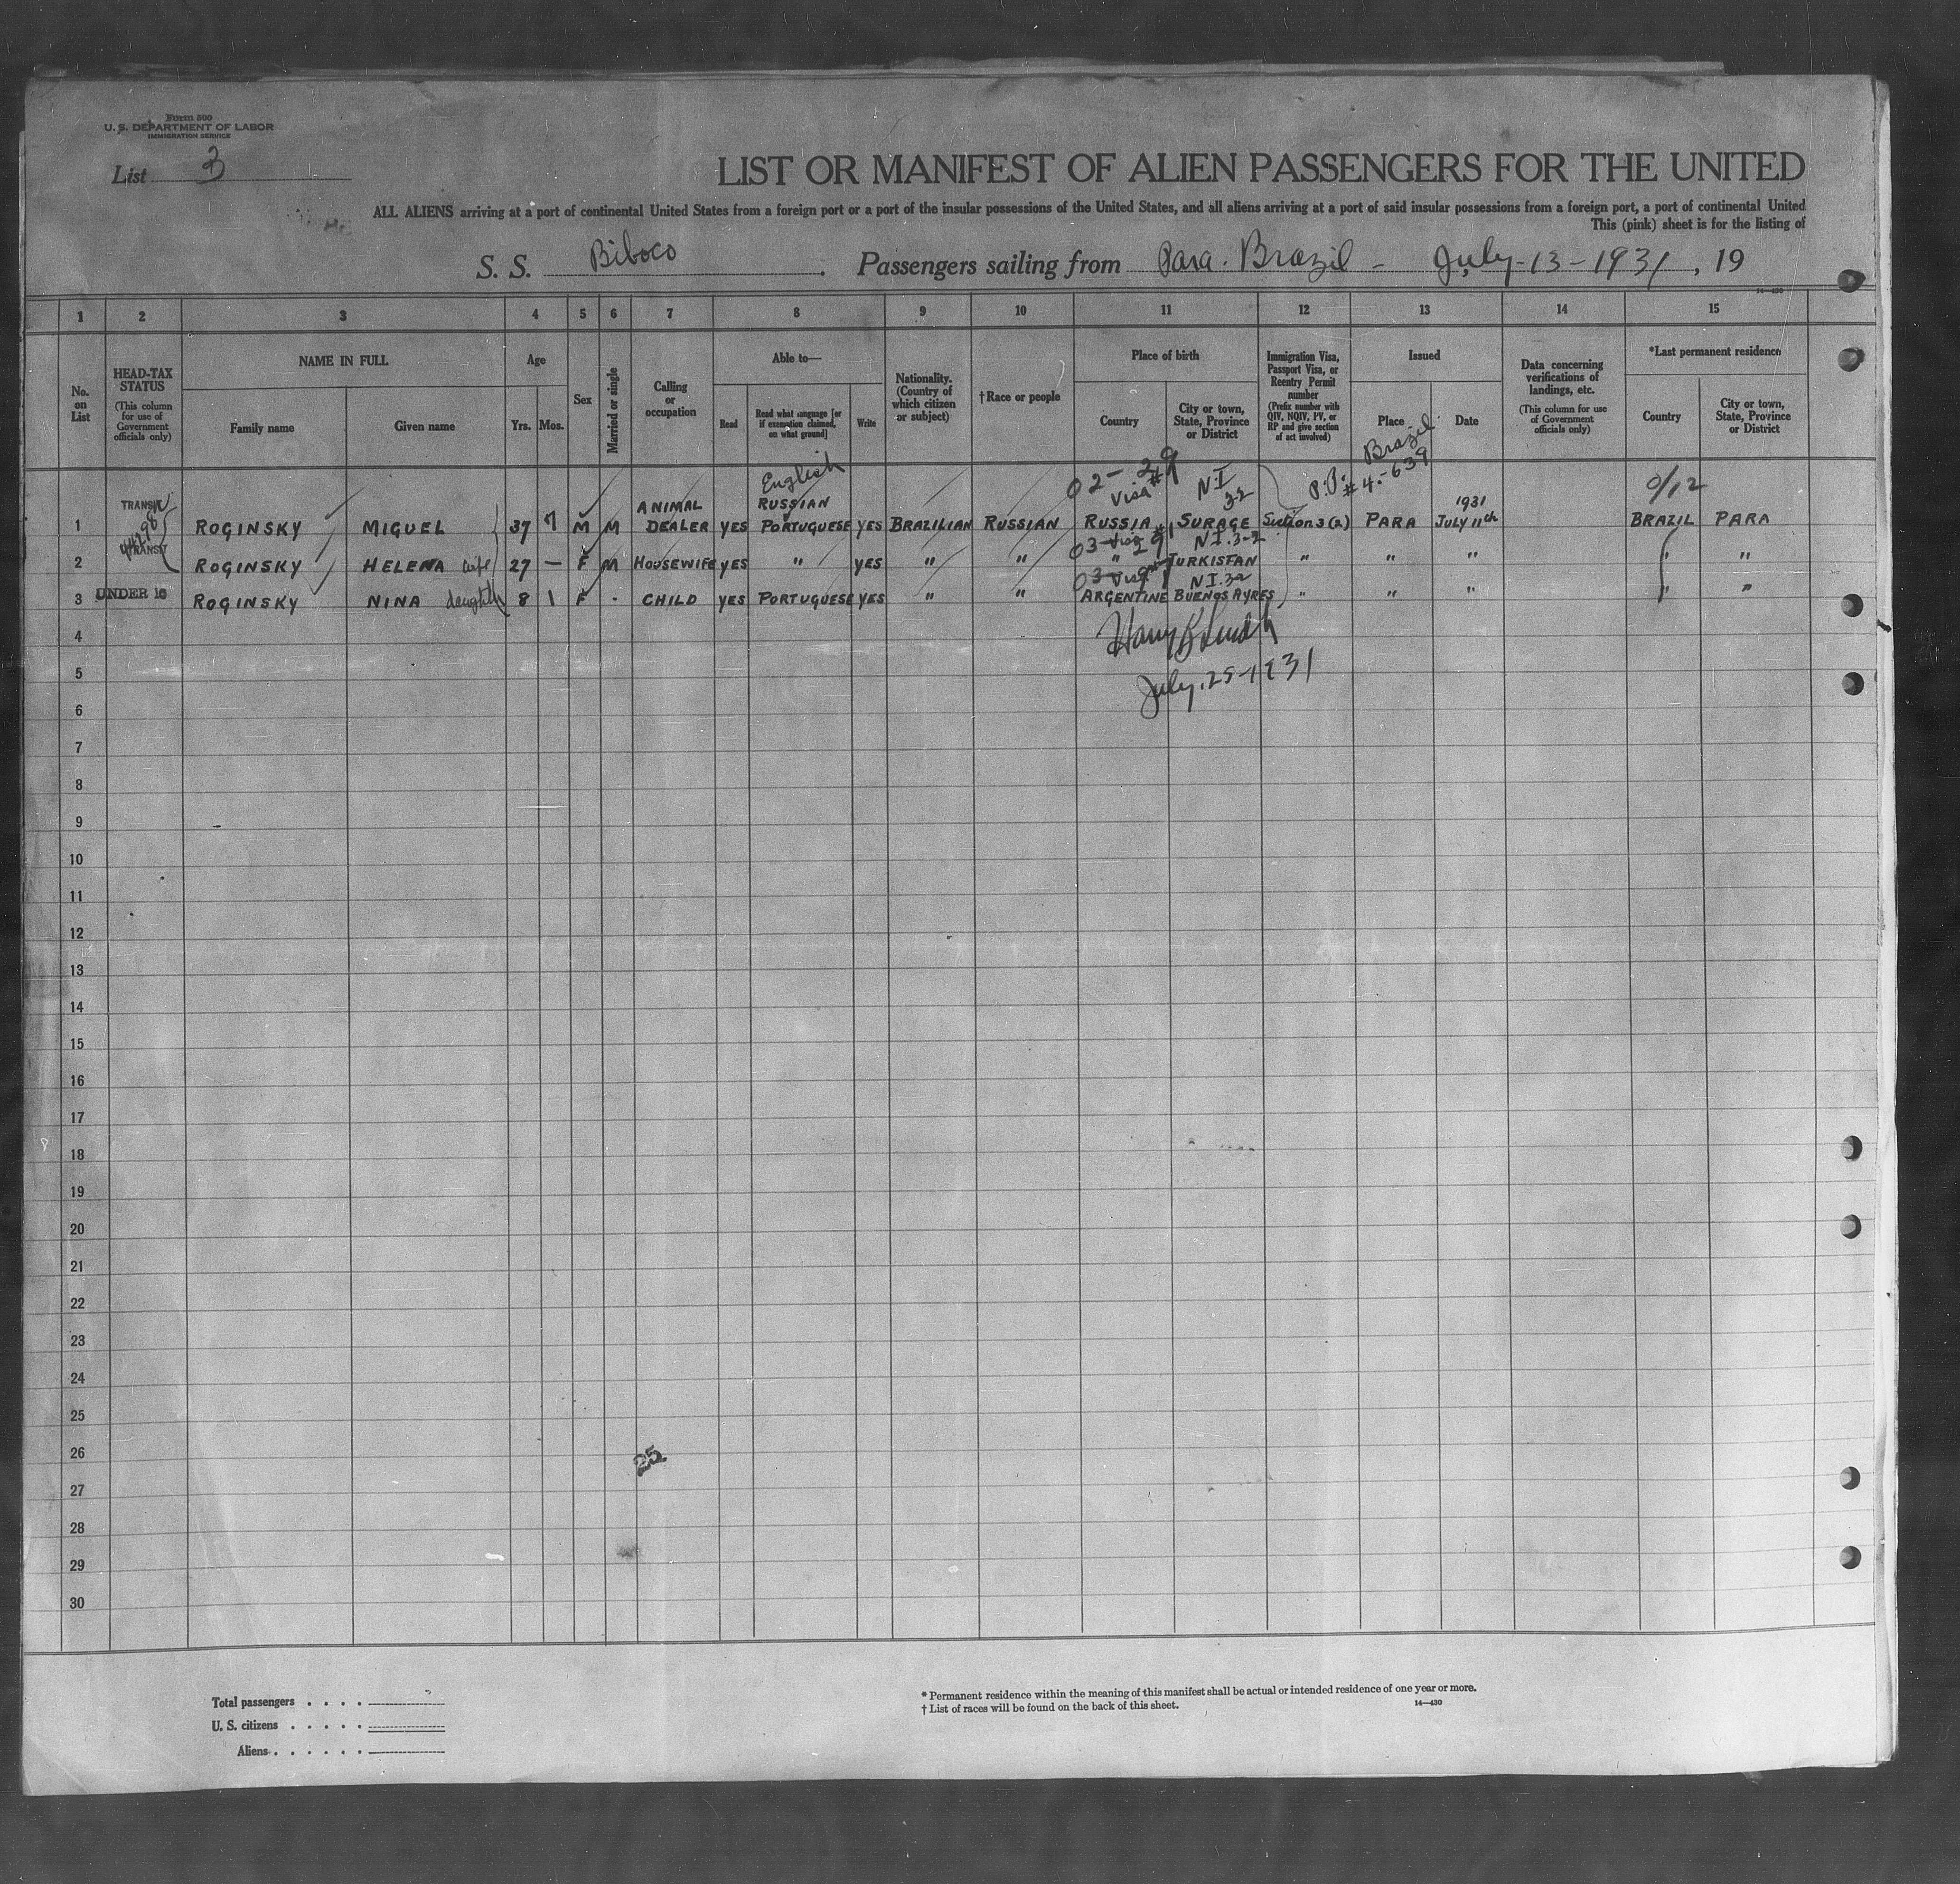 Form 500
U. S. DEPARTMENT OF LABOR
IMMIGRATION SERVICE
List 3
LIST OR MANIFEST OF ALIEN PASSENGERS FOR THE UNITED
ALL ALIENS arriving at a port of continental United States from a foreign port or a port of the insular possessions of the United States, and all aliens arriving at a port of said insular possessions from a foreign port, a port of continental United
This (pink) sheet is for the listing of
S. S. Biboco. Passengers sailing from Para. Brazil - July-13-1931, 19
14—430
1 2 3 4 5 6 7 8 9 10 11 12 13 14 15
No. on List
HEAD-TAX STATUS
(This column for use of Government officials only)
NAME IN FULL
Family name
Given name
Age
Yrs. Mos.
Sex
Married or single
Calling or occupation
Able to—
Read
Read what language [or if exemption claimed, on what ground]
Write
Nationality. (Country of which citizen or subject)
†Race or people
Place of birth
Country
City or town, State, Province or District
Immigration Visa, Passport Visa, or Reentry Permit number
(Prefix number with QIV, NQIV, PV, or RP and give section of act involved)
Issued
Place
Date
Data concerning verifications of landings, etc.
(This column for use of Government officials only)
*Last permanent residence
Country
City or town, State, Province or District
English 02-29 Visa # N.I 32 P.P. Brazil # 4.-639 0/12
TRANSIT ANIMAL RUSSIAN 1931
1 ROGINSKY MIGUEL 37 7 M M DEALER YES PORTUGUESE YES BRAZILIAN RUSSIAN RUSSIA SURAGE Section 3 (2) PARA JULY 11th BRAZIL PARA
TRANSIT 03- Visa 29 N.I.3-2
2 ROGINSKY HELENA wife 27 — F M HOUSEWIFE YES " YES " " " TURKISTAN " " " " "
UNDER 16 03- Visa N.I.32
3 ROGINSKY NINA daughter 8 1 F - CHILD YES PORTUGUESE YES " " ARGENTINE BUENOS AYRES " " " " "
4
5 July.25-1931
6
7
8
9
10
11
12
13
14
15
16
17
18
19
20
21
22
23
24
25
26 25
27
28
29
30
Total passengers . . . .
U. S. citizens . . . . .
Aliens . . . . . .
* Permanent residence within the meaning of this manifest shall be actual or intended residence of one year or more.
† List of races will be found on the back of this sheet.
14—430